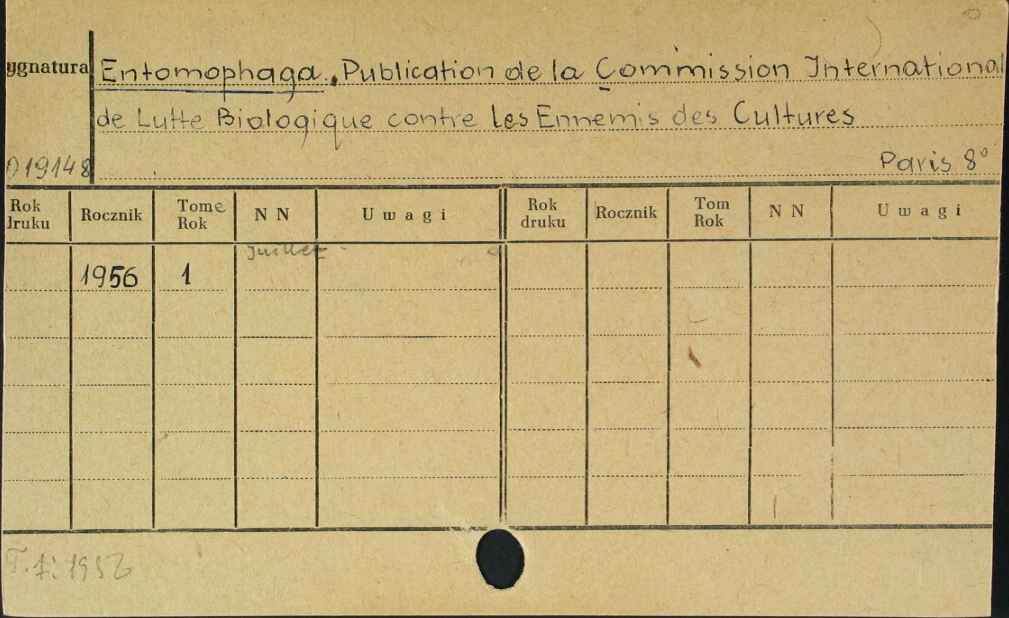 ygnatura Entomophaga. Publication de la Commission International
de Lutte Biologique contre les Ennemis des Cultures
19148 Paris 8°
Rok druku Rocznik Tome Rok N N Uwagi Rok druku Rocznik Tom Rok N N Uwagi
Juillet
1956 1
T. 1: 1956